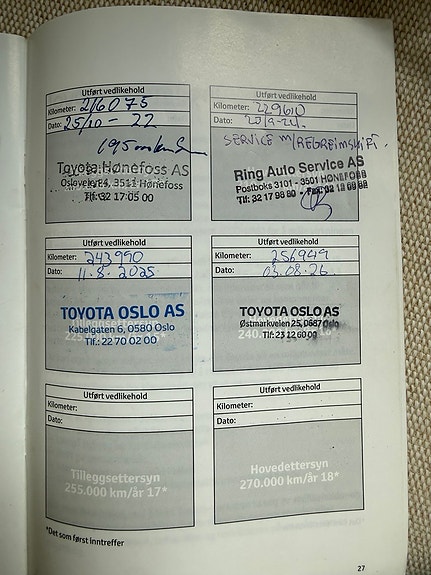 Utført vedlikehold
Kilometer: 216075
Dato: 25/10-22
195000km
Toyota Hønefoss AS
Osloveien 4, 3511 Hønefoss
Tlf: 32 17 05 00
Utført vedlikehold
Kilometer: 229610
Dato: 25/9-24.
SERVICE m/REGREIMSKIFT.
Ring Auto Service AS
Postboks 3101 - 3501 HØNEFOSS
Tlf: 32 17 98 80 - Fax:
Utført vedlikehold
Kilometer: 243990
Dato: 11.8.2025
TOYOTA OSLO AS
Kabelgaten 6, 0580 Oslo
Tlf.: 22 70 02 00
Utført vedlikehold
Kilometer: 256949
Dato: 03.08.26
TOYOTA OSLO AS
Østmarkveien 25, 0687 Oslo
Tlf.: 23 12 60 00
Utført vedlikehold
Kilometer:
Dato:
Tilleggsettersyn
255.000 km/år 17*
Utført vedlikehold
Kilometer:
Dato:
Hovedettersyn
270.000 km/år 18*
*Det som først inntreffer
27